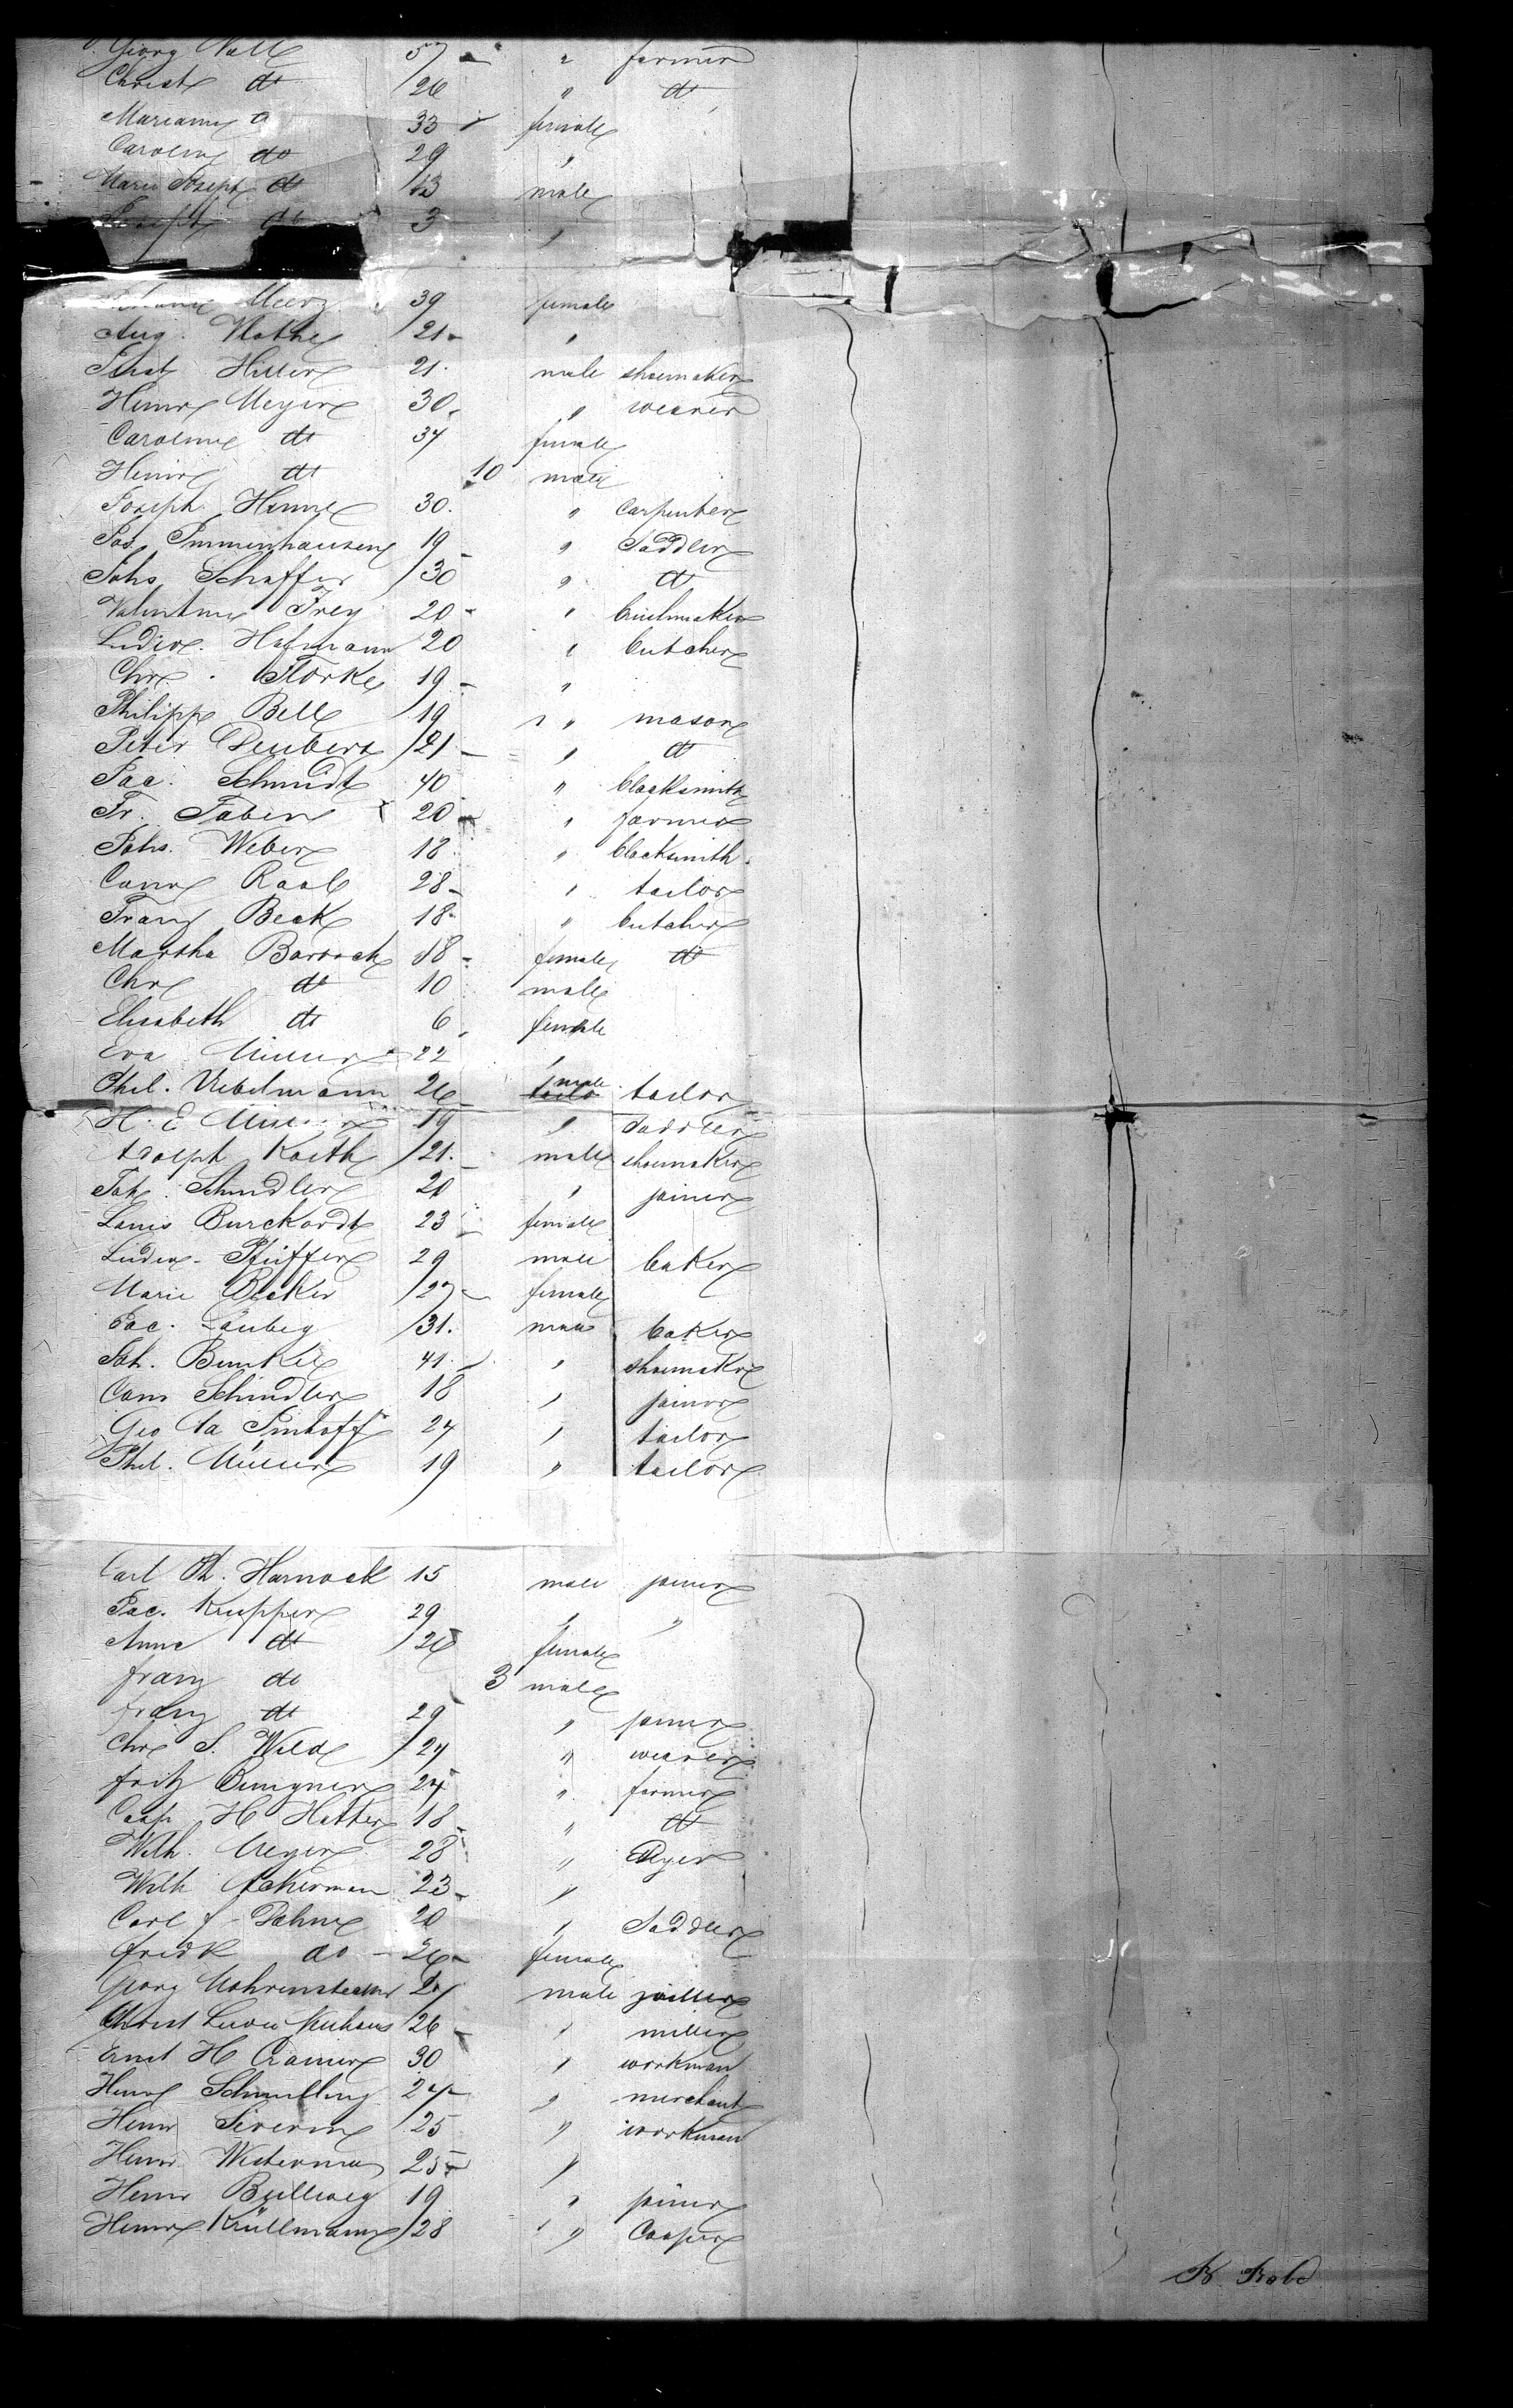 Georg Noll 57 " farmer
Christ do 26 " do
Mariann do 33 female
Caroline do 29 "
Marie Joseph do 13 male
Joseph do 3 "
Meerz 39 female
Aug. Nothe 21 "
Hiller 21 male shoemaker
Heinr Meyer 30 " weaver
Caroline do 34 female
Heinr do 10 male
Joseph Henne 30 " Carpenter
Jos. Immenhausen 19 " Saddler
Johs Schaffer 30 " do
Valentine Frey 20 "
Ludw. Hofmann 20 " butcher
Chr. Storke 19 "
Philipp Bell 19 " mason
Peter Deubert 21 " do
Jac. Schmidt 40 " blacksmith
Fr. Faber 20 " farmer
Johs. Weber 18 " blacksmith
Conr Raab 28 " tailor
Franz Beck 18 " butcher
Martha 18 female do
Chr do 10 male
Elisabeth do 6 female
Eva Müller 22 "
Phil. Uebelmann 26 male tailor
H. E Müller 19 " Saddler
Adolph Koeth 21 male shoemaker
Joh. Schindler 20 " joiner
Louis Burckardt 23 female
Ludw. Pfeiffer 29 male baker
Marie Becker 27 female
Jac. 31 male baker
Joh. Bunkel 41 " shoemaker
Conr Schindler 18 " joiner
Geo 24 " tailor
Phil. Müller 19 " tailor
Carl Th. Harnack 15 male joiner
Jac. Kupper 29 " "
Anne do 26 female
franz do 3 male
franz do 29 " joiner
Chr S. Wild 24 " weaver
fritz 24 " farmer
Casp H Hatter 18 " do
Wilh. Meyer 28 " Dyer
Wilh Ackerman 23 "
Carl f Dahne 20 " Saddler
fredk do 26 female
Georg 24 male
Christ Neuhaus 26 " miller
Ernst H Cramer 30 " workman
Heinr Schmelling 24 " merchant
Heinr Severin 25 " workman
Heinr Westerman 25 "
Heinr 19 " joiner
Heinr Krüllmann 28 " Cooper